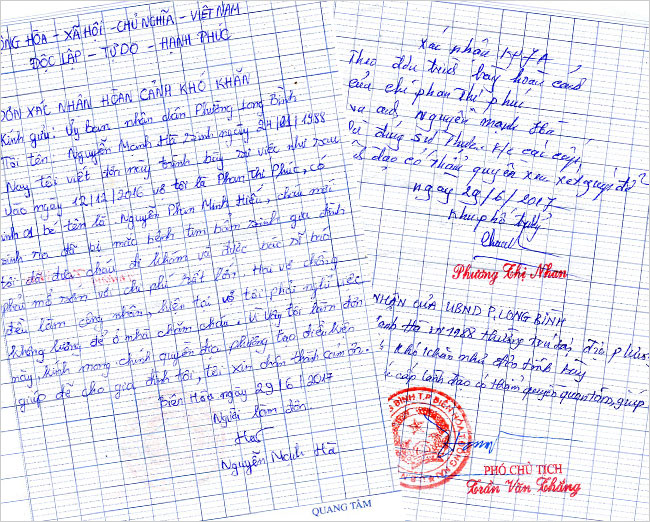 ỘNG HÒA - XÃ HỘI - CHỦ NGHĨA - VIỆT NAM
ĐỘC LẬP - TỰ DO - HẠNH PHÚC
ĐƠN XÁC NHẬN HOÀN CẢNH KHÓ KHĂN
Kính gửi: Ủy ban nhân dân Phường Long Bình
Tôi tên: Nguyễn Mạnh Hà Sinh ngày 24/01/1988
Nay tôi viết đơn này trình bày sự việc như sau
Vào ngày 12/12/2016 vợ tôi là Phan Thị Phúc, có
sinh bé tên là Nguyễn Phan Minh Hiếu, cháu mới
sinh ra đã bị mắc bệnh tim bẩm sinh gia đình
tôi đã đưa cháu đi khám và được bác sĩ
phải mổ sớm với chi phí rất lớn Hai vợ chồng
đều làm công nhân, hiện tại vợ tôi phải nghỉ việc
không lương để ở nhà chăm cháu. Vì vậy tôi làm đơn
này, kính mong chính quyền địa phương tạo điều kiện
giúp đỡ cho gia đình tôi, tôi xin chân thành cảm ơn.
Biên Hòa ngày 29/6/2017
Người làm đơn
Nguyễn Mạnh Hà
QUANG TÂM
Xác nhận KP 7A
Theo đơn trình bày hoàn cảnh
của chị phan thị phúc
và anh Nguyễn mạnh Hà
Là đúng sự thật. K/c các cấp
đạo có thẩm quyền xem xét giúp đỡ
ngày 29/6/2017
Khu phố
Phương Thị Nhan
NHẬN CỦA UBND P. LONG BÌNH
anh Hà SN 1988 thường trú tại địa phương
khó khăn như đơn trình bày
cấp lãnh đạo có thẩm quyền quan tâm, giúp
PHÓ CHỦ TỊCH
Trần Văn Thắng